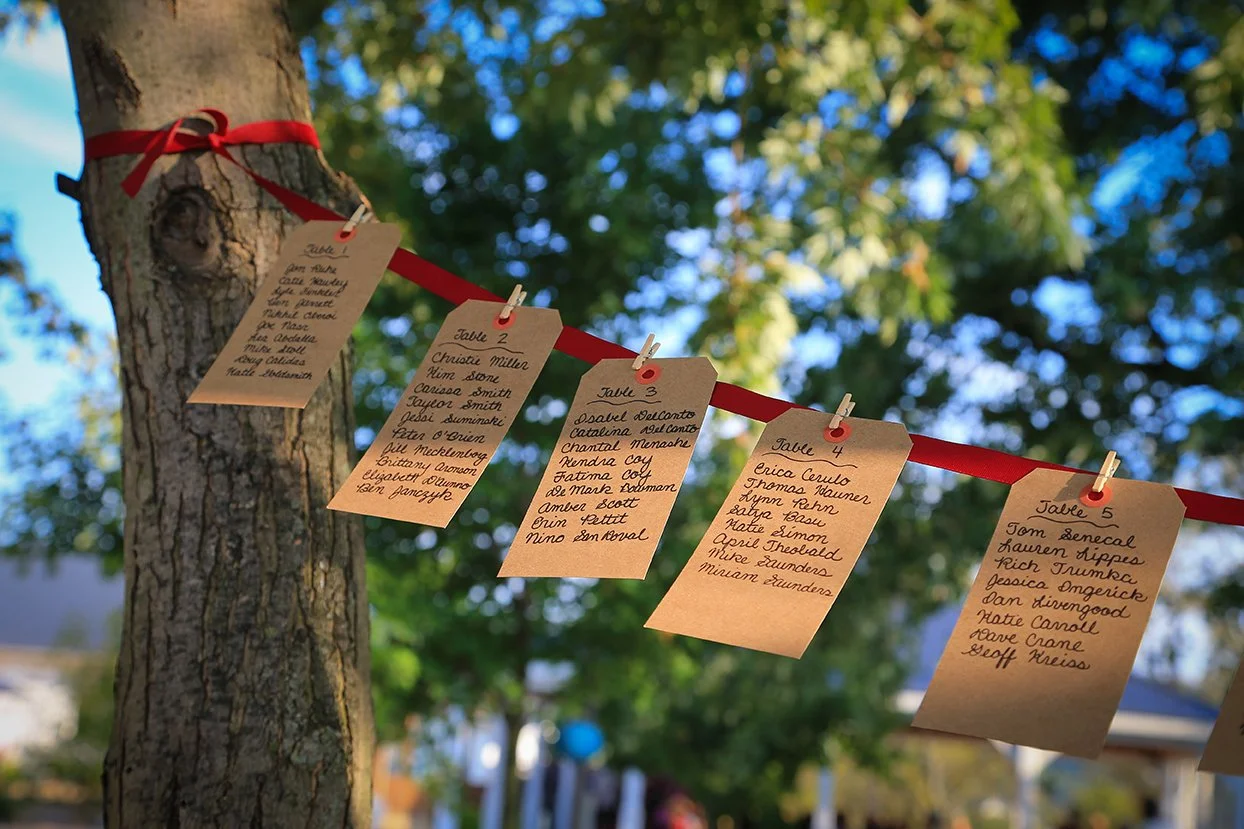 Table 1
Jon
Catie Hawley
Kyle
Ben Jarrett
Nikhil
Joe Nasr
Lea Abdalla
Mike Stoll
Doug Calidas
Katie Goldsmith
Table 2
Christie Miller
Kim Stone
Carissa Smith
Taylor Smith
Jessi Suminski
Peter O'Brien
Jill Mecklenborg
Brittany Aronson
Elizabeth
Ben Janczyk
Table 3
Isabel DelCanto
Catalina DelCanto
Chantal Menashe
Kendra Coy
Fatima Coy
DeMark
Amber Scott
Erin Pettit
Nino Sandoval
Table 4
Erica Cerulo
Thomas Hauner
Lynn Rehn
Satya Basu
Katie Simon
April Theobald
Mike Saunders
Miriam Saunders
Table 5
Tom Senecal
Lauren Lippes
Rich Trumka
Jessica Ingerick
Dan Livengood
Katie Carroll
Dave Crane
Geoff Kreiss